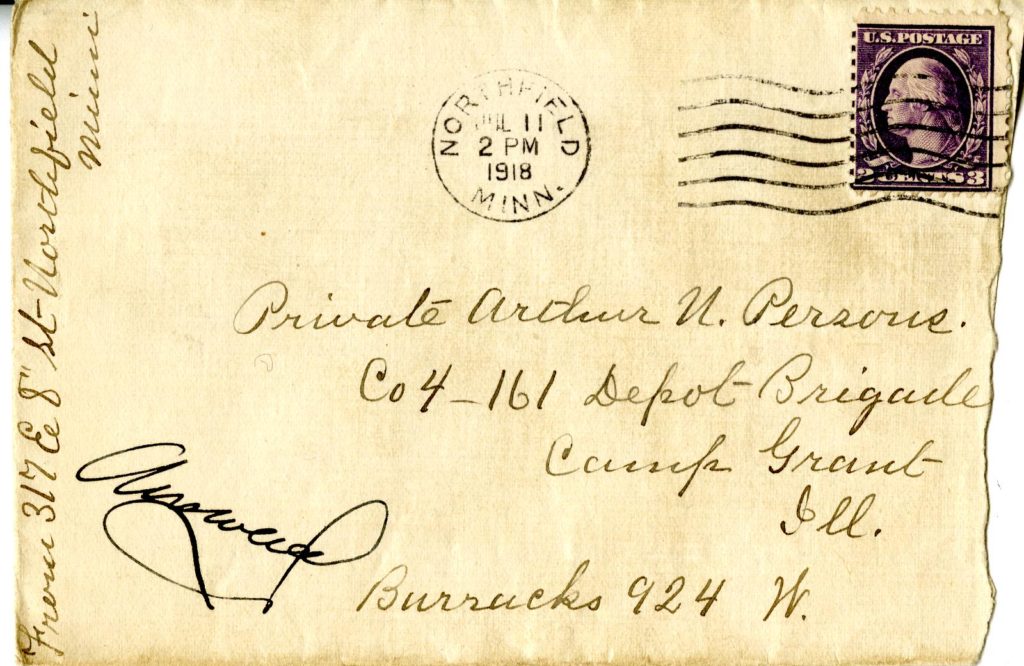 From 317 E 8" St- Northfield
Minn
NORTHFIELD
JUL 11
2 PM
1918
MINN.
U.S. POSTAGE
3 CENTS 3
Private Arthur N. Persons.
Co 4 - 161 Depot Brigade
Camp Grant
Ill.
Answered
Burracks 924 W.